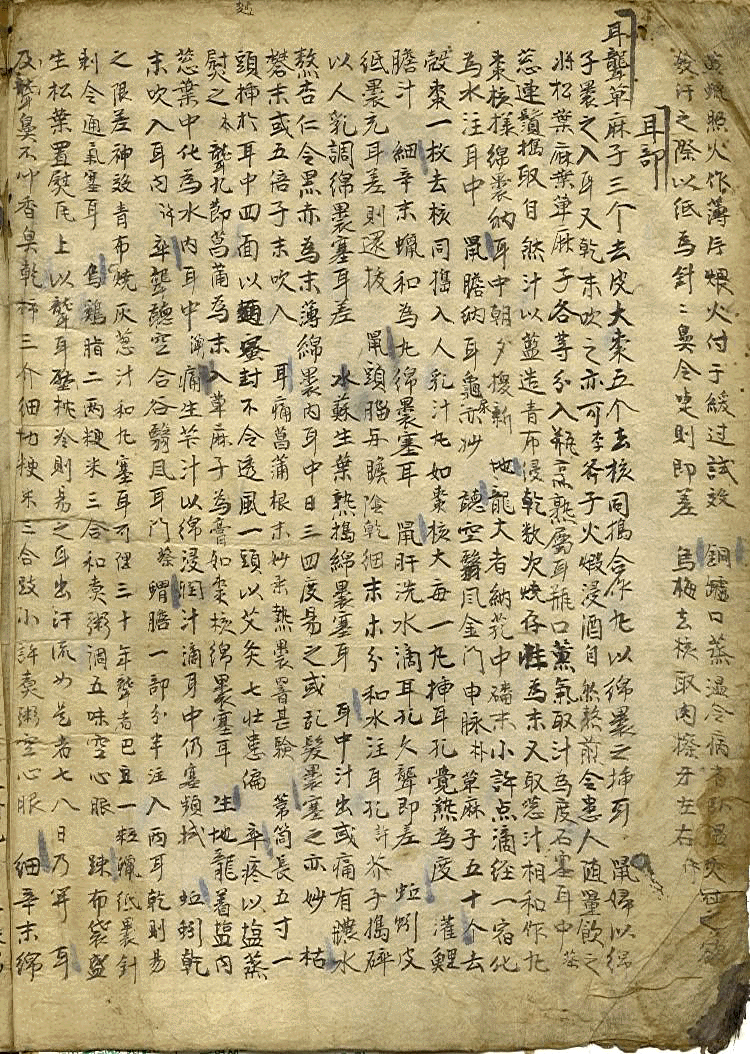 黃蠟照火作薄片煨火付于緩過試效 銅爐口蒸溫冷病者
發汗之際以紙爲針〻鼻令嚏則即差 烏梅去核取肉擦牙左右
耳部
耳聾草麻子三个去皮大棗五个去核同搗合作丸以綿裹之揷耳 鼠婦以綿
子裹之入耳又乾末吹之亦可 芥子火煆浸酒自然熬煎令患人随量飮之
將松葉麻葉草麻子各等分入甁烹熟屬耳甁口薰氣取汁爲度石塞耳中
葱連鬚搗取自然汁以藍造青布浸乾数次燒存性爲末又取葱汁相和作丸
棗核樣綿裹納耳中朝夕換新 地龍大者納葱中磻末小許点滴経一宿化
爲水注耳中 鼠膽納耳龜尿亦妙 聽空翳風金門申脉 草麻子五十个去
殼棗一枚去核同搗入人乳汁丸如棗核大每一丸揷耳孔覺熱爲度 灌鯉
膽汁 細辛末蠟和爲丸綿裹塞耳 鼠肝洗水滴耳孔久聾即差 蚯蚓皮
紙裹充耳差則還拔 鼠頭腦与膽陰乾細末水分和水注耳孔 芥子搗碎
以人乳調綿裹塞耳差 水蘇生葉熟搗綿裹塞耳 耳中汁出或痛有膿水
熬杏仁令黑亦爲末薄綿裹內耳中日三四度易之或乱髮裹塞之亦妙 枯
礬末或五倍子末吹入 耳痛菖蒲根末炒熱裹署甚驗 葦筒長五寸一
頭揷於耳中四面以麵密封不令透風一頭以艾灸七壯患偏 卒疼以塩蒸
熨之 聾九節菖蒲爲末入草麻子爲膏如棗核綿裹塞耳 生地龍着塩內
葱葉中化爲水內耳中 痛生芐汁以綿浸潤汁滴耳中仍塞頻拭 蚯蚓乾
末吹入耳內 卒聾聽空合谷翳風耳門 鯽膽一部分半注入兩耳乾則易
之限差神效青布燒灰葱汁和丸塞耳可 三十年聾者巴豆一粒蠟紙裹針
刺令通氣塞耳 烏鷄脂二兩粳米三合和煮粥調五味空心服 踈布袋盛
生松葉置熨瓦上以聾耳壓枕冷則易之耳出汗流如是者七八日乃開 耳
及聾鼻不叶香臭乾柿三介細切粳米三合豉小許煮粥空心服 細辛末綿